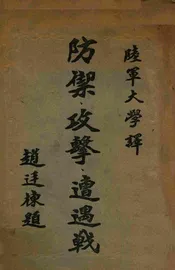 陸軍大學譯
防禦·攻擊·遭遇戰
趙廷棟題